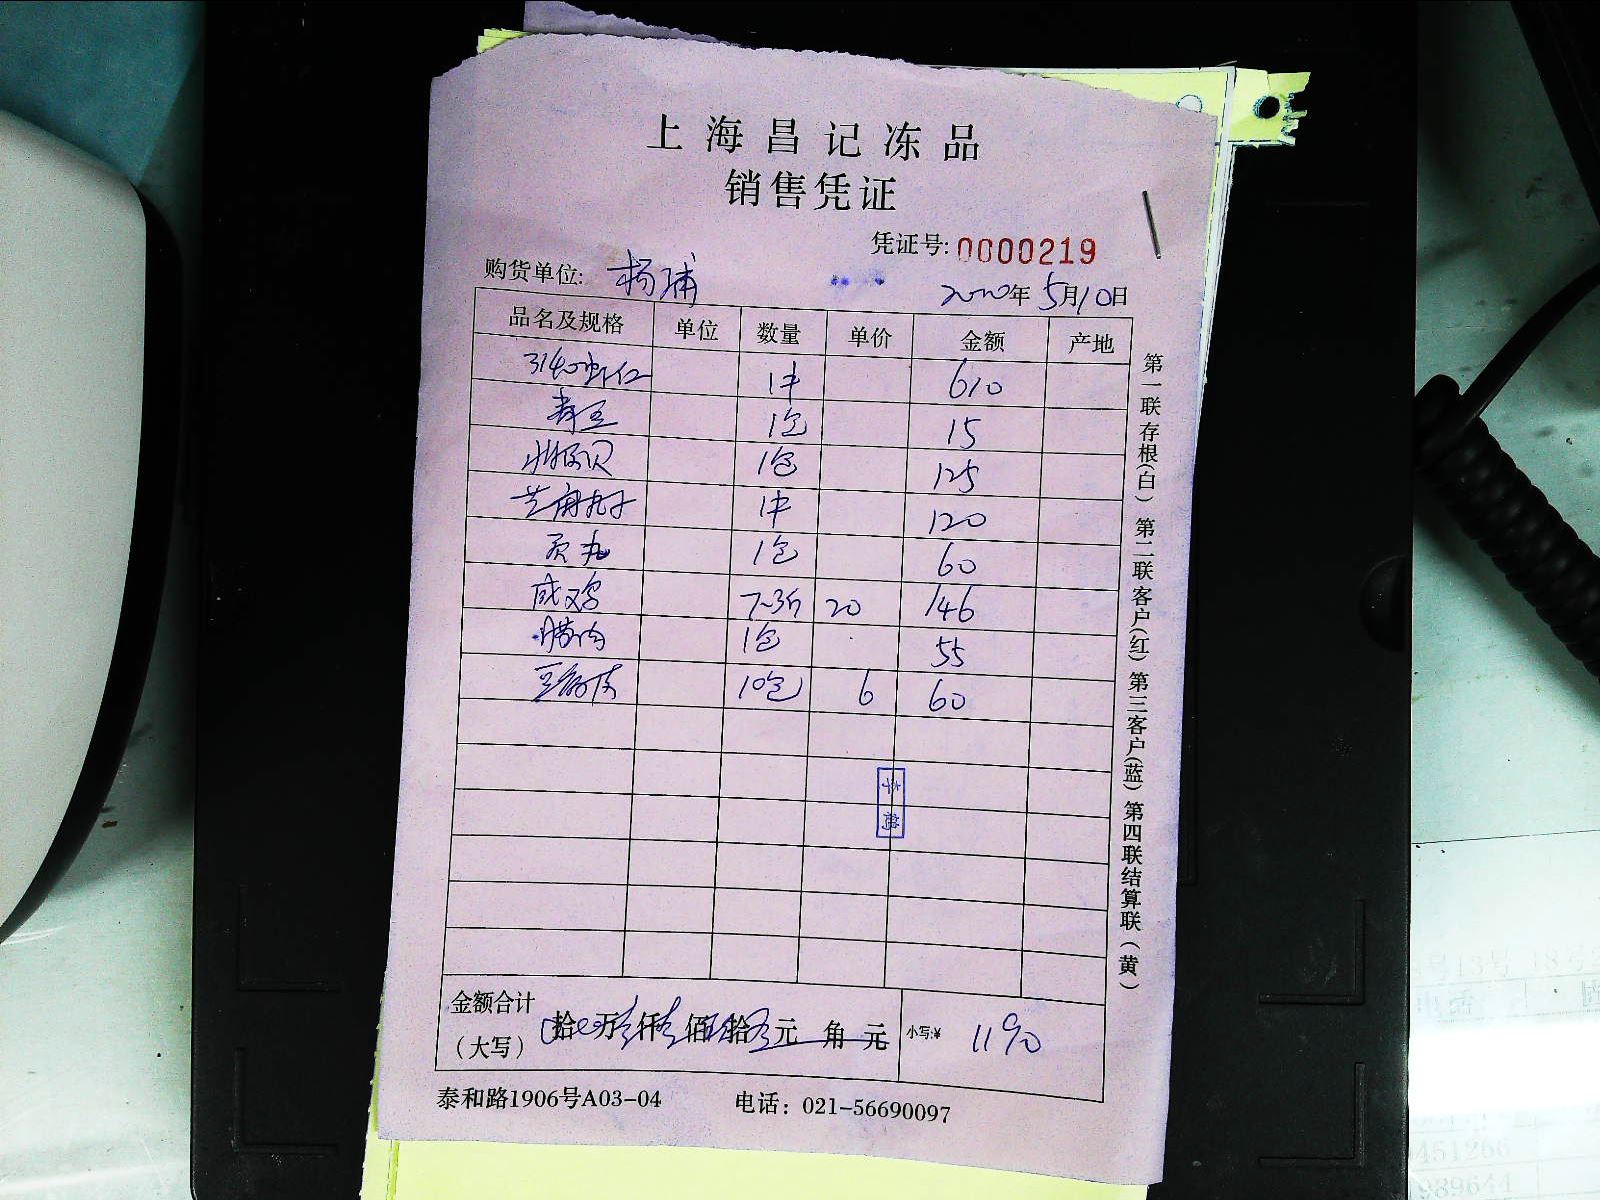 上海昌记冻品
销售凭证
凭证号: 0000219
购货单位: 杨浦 2020年5月10日
品名及规格 单位 数量 单价 金额 产地
3140虾仁 1件 610
青豆 1包 15
1包 125
丸子 1件 120
贡丸 1包 60
咸鸡 7.3斤 20 146
腊肉 1包 55
豆腐皮 10包 6 60
金额合计
（大写） 拾 万 仟 佰 拾 元 角 元 小写:¥ 1190
泰和路1906号A03-04 电话：021-56690097
第一联存根(白) 第二联客户(红) 第三客户(蓝) 第四联结算联(黄)